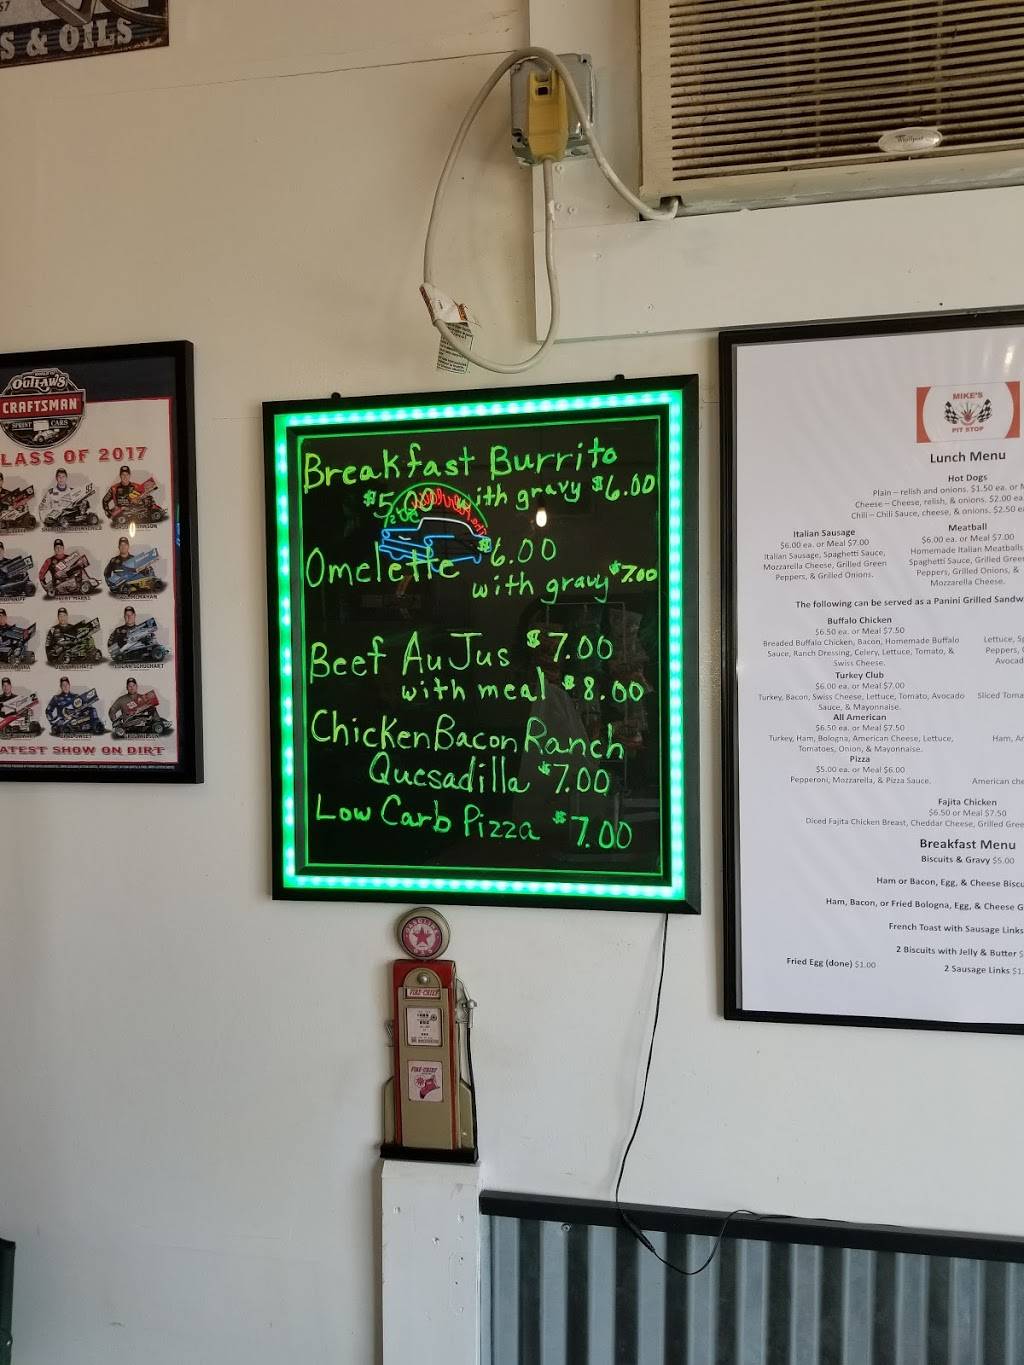 S & OILS
OUTLAWS
CRAFTSMAN
SPRINT CARS
LASS OF 2017
ATEST SHOW ON DIRT
Breakfast Burrito
$5.00 with gravy $6.00
Omelette $6.00
with gravy $7.00
Beef Au Jus $7.00
with meal $8.00
Chicken Bacon Ranch
Quesadilla $7.00
Low Carb Pizza $7.00
FIRE-CHIEF
FIRE-CHIEF
Whirlpool
MIKE'S
PIT STOP
Lunch Menu
Hot Dogs
Plain – relish and onions. $1.50 ea. or
Cheese – Cheese, relish, & onions. $2.00 ea
Chili – Chili Sauce, cheese, & onions. $2.50 e
Italian Sausage
$6.00 ea. or Meal $7.00
Italian Sausage, Spaghetti Sauce,
Mozzarella Cheese, Grilled Green
Peppers, & Grilled Onions.
Meatball
$6.00 ea. or Meal $7.00
Homemade Italian Meatballs
Spaghetti Sauce, Grilled Green
Peppers, Grilled Onions, &
Mozzarella Cheese.
The following can be served as a Panini Grilled Sandw
Buffalo Chicken
$6.50 ea. or Meal $7.50
Breaded Buffalo Chicken, Bacon, Homemade Buffalo
Sauce, Ranch Dressing, Celery, Lettuce, Tomato, &
Swiss Cheese.
Lettuce, Sp
Peppers,
Avocad
Turkey Club
$6.00 ea. or Meal $7.00
Turkey, Bacon, Swiss Cheese, Lettuce, Tomato, Avocado
Sauce, & Mayonnaise.
Sliced Toma
All American
$6.50 ea. or Meal $7.50
Turkey, Ham, Bologna, American Cheese, Lettuce,
Tomatoes, Onion, & Mayonnaise.
Ham, A
Pizza
$5.00 ea. or Meal $6.00
Pepperoni, Mozzarella, & Pizza Sauce.
American che
Fajita Chicken
$6.50 or Meal $7.50
Diced Fajita Chicken Breast, Cheddar Cheese, Grilled Gree
Breakfast Menu
Biscuits & Gravy $5.00
Ham or Bacon, Egg, & Cheese Biscu
Ham, Bacon, or Fried Bologna, Egg, & Cheese G
French Toast with Sausage Links
2 Biscuits with Jelly & Butter $
Fried Egg (done) $1.00
2 Sausage Links $1.